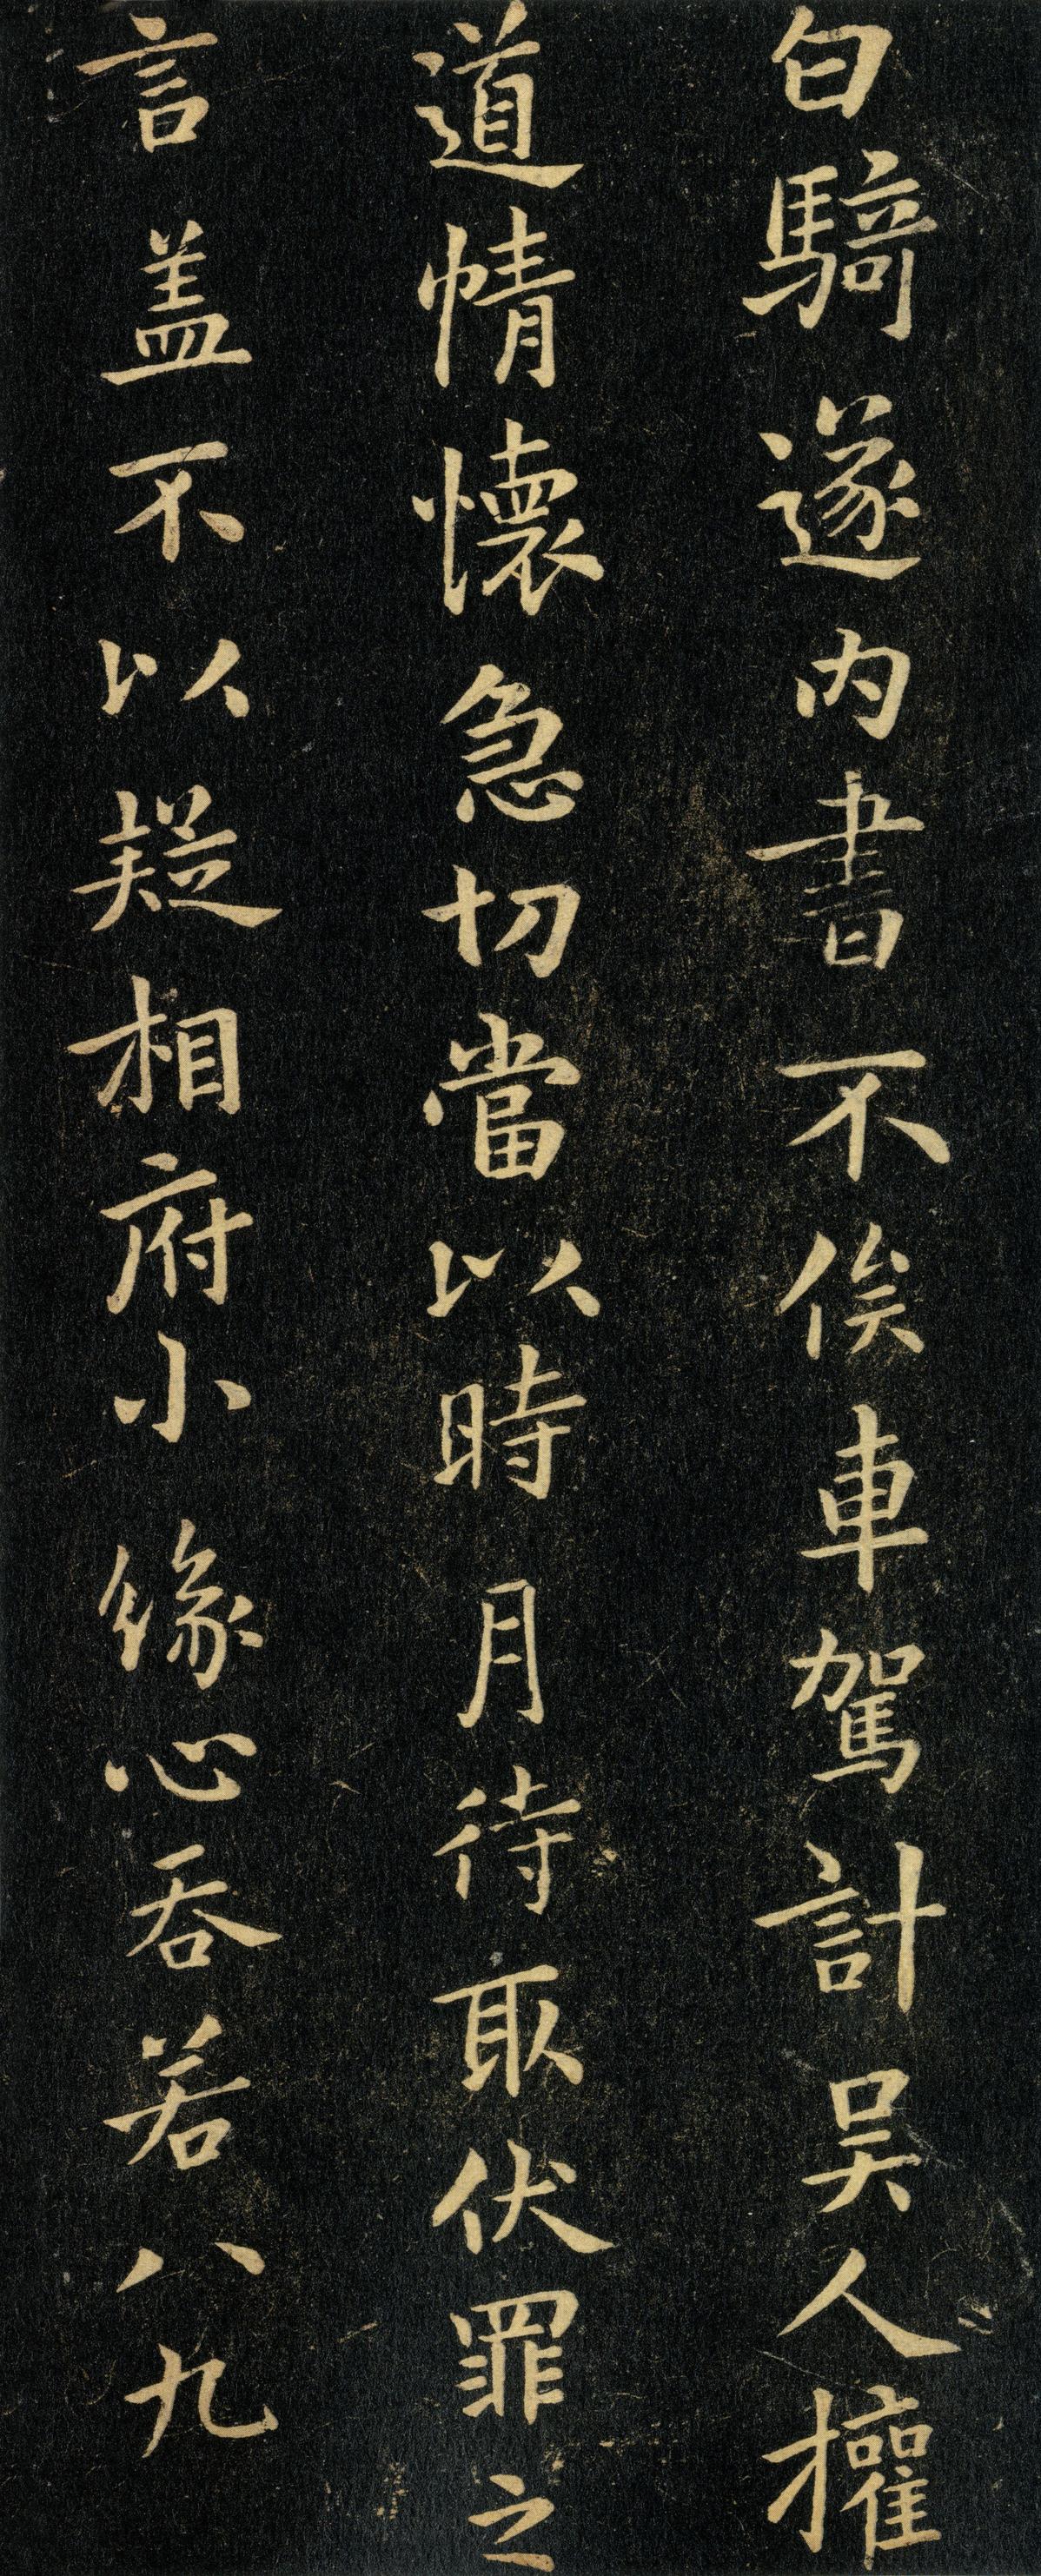 白騎遂内書不俟車駕計吴人權
道情懷急切當以時月待取伏罪之
言盖不以疑相府小緣心吞若八九